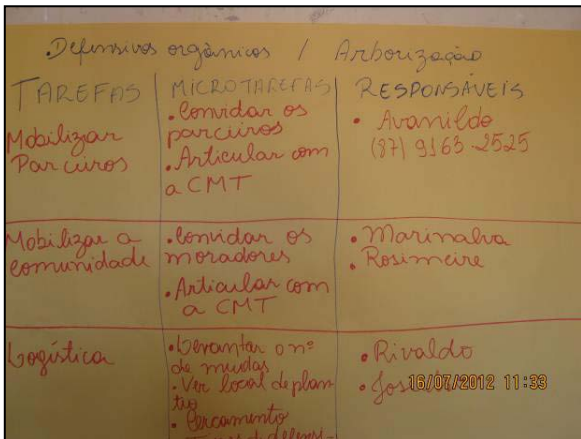 Defensivos orgânicos / Arborização
TAREFAS
MICROTAREFAS
RESPONSÁVEIS
Mobilizar
Parceiros
• Convidar os
parceiros
• Articular com
a CMT
• Avanildo
(87) 9163-2525
Mobilizar a
comunidade
• Convidar os
moradores
• Articular com
a CMT
• Marinalva
• Rosimeire
Logística
• Levantar o nº
de mudas
• Ver local de plan-
tio
• Orçamento
de defensi-
• Rivaldo
16/07/2012 11:33